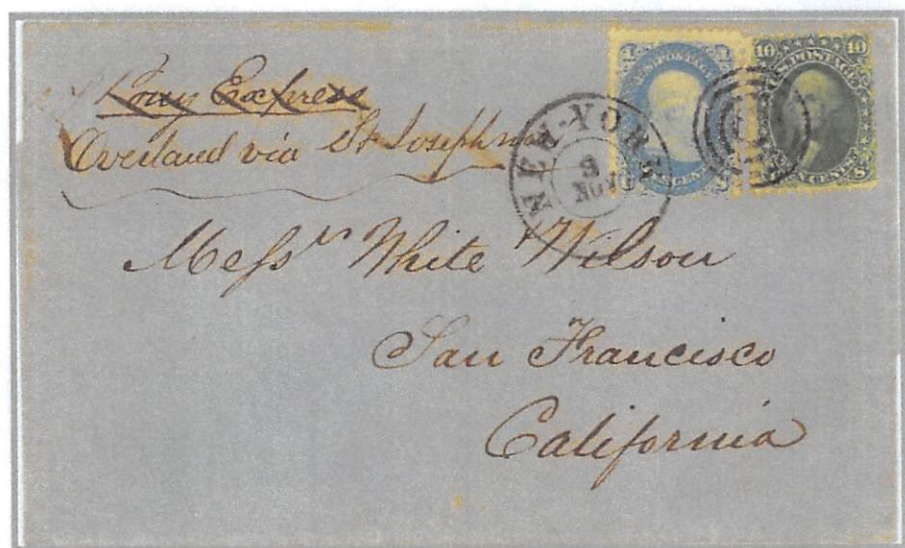 Pony Express
Overland via St Joseph mo
NEW-YORK
8
NOV
10 10
U.S. POSTAGE
TEN CENTS
Messrs White Wilson
San Francisco
California